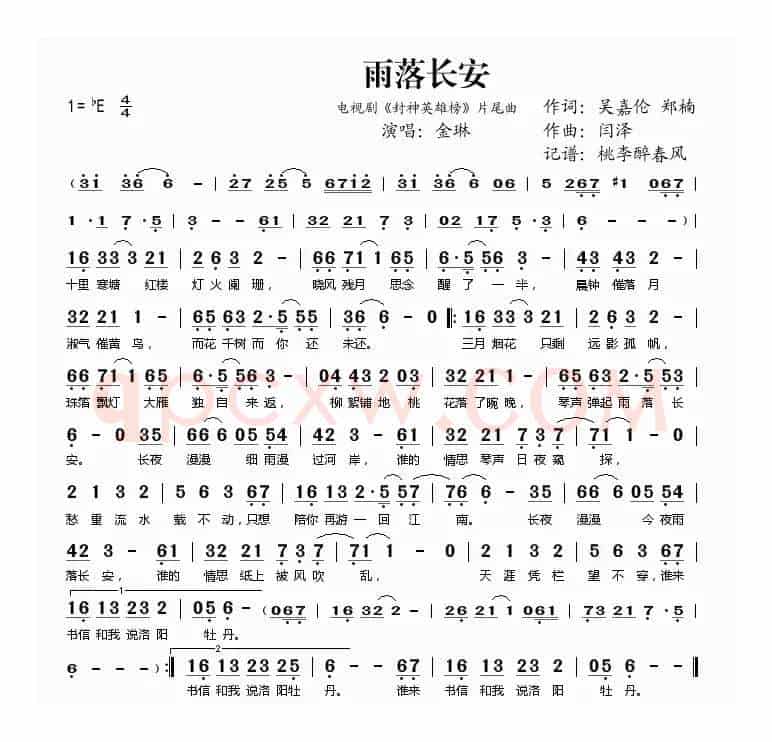 雨落长安
1=♭E 4/4
电视剧《封神英雄榜》片尾曲
演唱：金琳
作词：吴嘉伦 郑楠
作曲：闫泽
记谱：桃李醉春风
(31 36 6 - | 27 25 5 6712 | 31 36 6 06 | 5 267 #1 067 |
1·1 7·5 | 3 - - 61 | 32 21 7 3 | 02 17 5·3 | 6 - - -) |
16 33 3 21 | 2 6 3 2 - | 66 71 1 65 | 6·5 56 3 - | 43 43 2 - |
十里寒塘 红楼 灯火阑珊， 晓风残月 思念 醒了一半， 晨钟催落月
32 21 1 - | 65 63 2·5 55 | 36 6 - 0 |: 16 33 3 21 | 2 6 3 2 - |
淑气催黄鸟， 而花千树而你还 未还。 三月烟花 只剩 远影孤帆，
66 71 1 65 | 6·5 56 3 - | 04 43 2 03 | 32 21 1 - | 65 63 2·5 53 |
珠箔飘灯 大雁 独自来返， 柳絮铺地桃 花落了晚晚， 琴声弹起雨落长
6 - 0 35 | 66 6 05 54 | 42 3 - 61 | 32 21 7 37 | 71 1 - 0 |
安。 长夜 漫漫 细雨漫 过河岸， 谁的 情思琴声日夜窥 探，
2 1 3 2 | 5 6 3 67 | 16 13 2·5 57 | 76 6 - 35 | 66 6 05 54 |
愁重流水 载不动，只想 陪你再游一回江 南。 长夜 漫漫 今夜雨
42 3 - 61 | 32 21 7·3 37 | 71 1 - 0 | 2 1 3 2 | 5 6 3 67 |
落长安， 谁的 情思纸上被风吹 乱， 天涯凭栏 望不穿，谁来
1
16 13 23 2 | 05 6 - (067 | 16 32 2 - | 02 21 1 061 | 65 63 2 7·5 |
书信和我说洛阳 牡丹。
2
6 - -) :| 16 13 23 25 | 6 - - 67 | 16 13 23 2 | 05 6 - 0 ‖
书信和我说洛阳牡 丹。 谁来 书信和我说洛阳 牡丹。
qpcxw.com